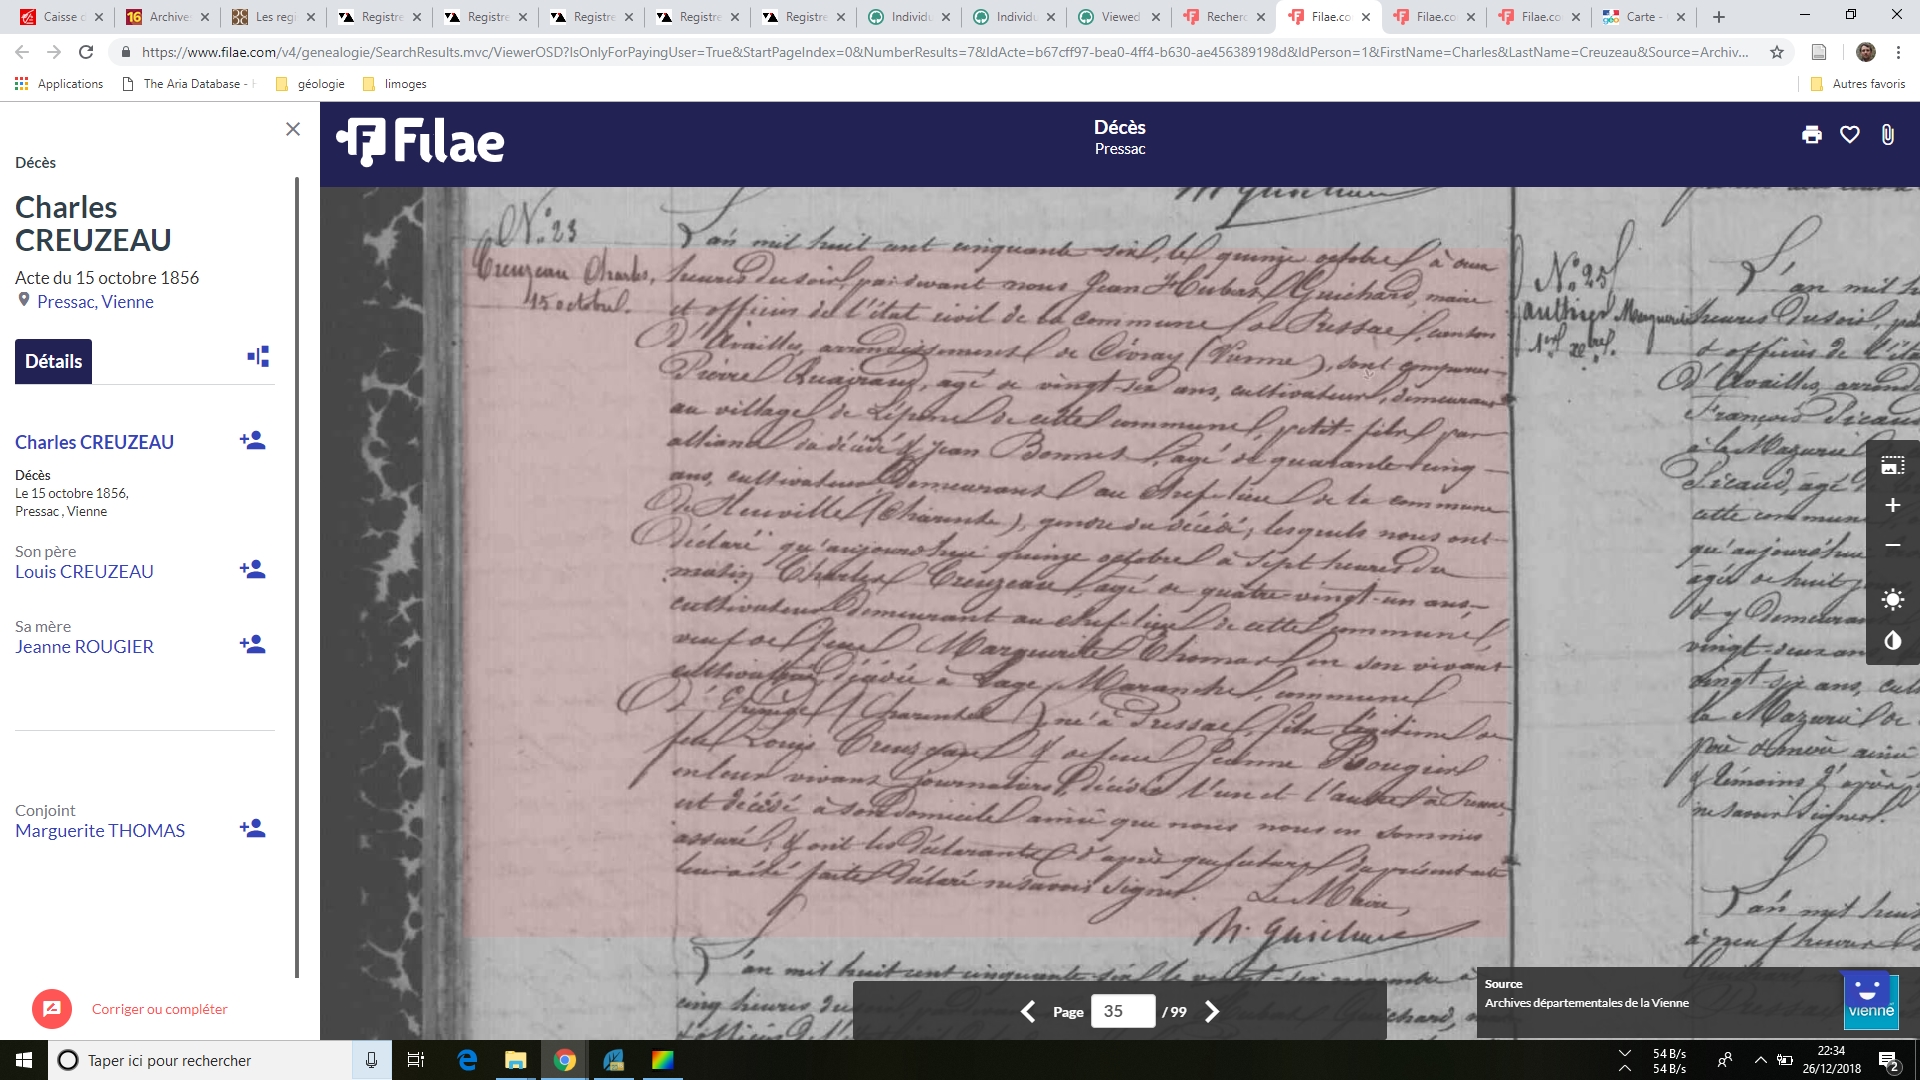 Caisse d
Archive
Les regi
Registre
Registre
Registre
Registre
Registre
Individu
Individu
Viewed
Recherc
Filae.co
Filae.co
Filae.co
Carte -
https://www.filae.com/v4/genealogie/SearchResults.mvc/ViewerOSD?IsOnlyForPayingUser=True&StartPageIndex=0&NumberResults=7&IdActe=b67cff97-bea0-4ff4-b630-ae456389198d&IdPerson=1&FirstName=Charles&LastName=Creuzeau&Source=Archiv...
Applications
The Aria Database -
géologie
limoges
Autres favoris
Décès
Charles
CREUZEAU
Acte du 15 octobre 1856
Pressac, Vienne
Détails
Charles CREUZEAU
Décès
Le 15 octobre 1856,
Pressac , Vienne
Son père
Louis CREUZEAU
Sa mère
Jeanne ROUGIER
Conjoint
Marguerite THOMAS
Corriger ou compléter
Filae
Décès
Pressac
N°. 23
Creuzeau Charles,
15 octobre.
L'an mil huit cent cinquante-six, le quinze octobre à onze
heures du soir, par devant nous Jean Hubert Guichard, maire
et officier de l'état civil de la commune de Pressac, canton
D'Availles, arrondissement de Civray (Vienne), sont comparus
Pierre Quairaud, agé de vingt-six ans, cultivateur, demeurant
au village de Lépine de cette commune, petit-fils par
alliance du décédé & Jean Bonnet, agé de quarante cinq
ans, cultivateur demeurant au chef-lieu de la commune
De Pleuville (Charente), gendre du décédé; lesquels nous ont
déclaré qu'aujourd'hui quinze octobre à sept heures du
matin Charles Creuzeau, agé de quatre-vingt-un ans
cultivateur demeurant au chef-lieu de cette commune,
veuf de feue Marguerite Thomas en son vivant
décédée à Lage, commune
(Charente) né à Pressac, fils légitime de
feu Louis Creuzeau & de feue Jeanne Rougier
en leur vivant journaliers, décédés l'un et l'autre à Pressac,
est décédé à son domicile ainsi que nous nous en sommes
assuré, & ont les déclarants d'après que lecture du présent acte
leur a été faite déclaré ne savoir signer. Le Maire,
M. Guichard
L'an mil huit cent cinquante-six le vingt-six novembre à
cinq heures du
Guichard,
d'officier de l'
N°. 25
Gaulthier Marguerite
1er Xbre.
L'an mil h
heures du soir, pa
& officier de l'éta
d'Availles, arrond
François Picaud
à la Mazurie
Picaud, agé
cette commune
qu'aujourd'hui
agée de huit jou
& y demeurant
vingt-deux an
vingt-six ans, cul
la Mazurie de
père & mère ainsi
& témoins d'après
ne savoir signer.
L'an mil huit
à neuf heures
Page 35 / 99
Source
Archives départementales de la Vienne
vienne
Taper ici pour rechercher
54 B/s
54 B/s
22:34
26/12/2018
2